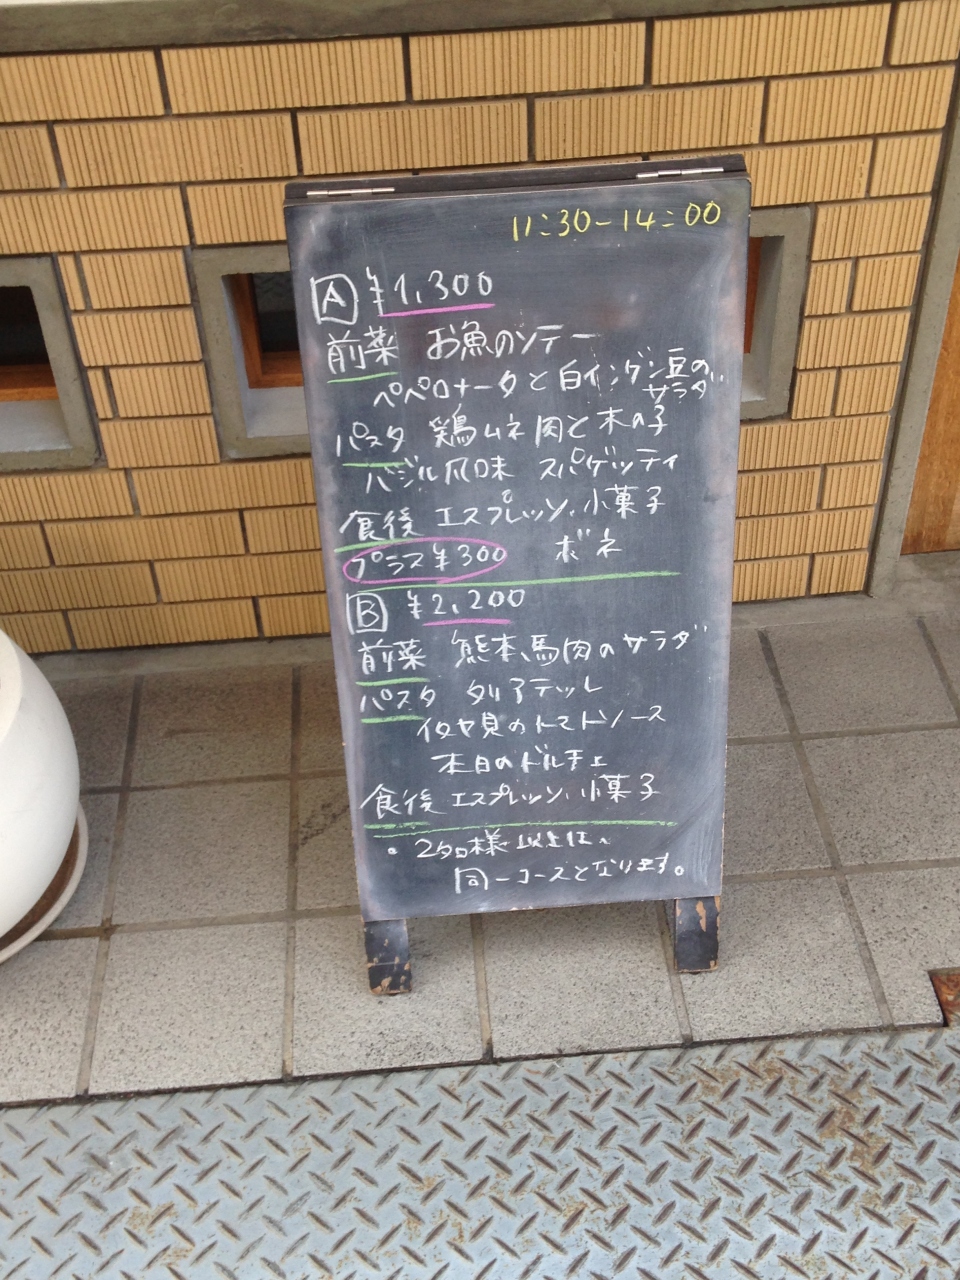 11:30-14:00
A ¥1,300
前菜 お魚のソテー
ペペロナータと白インゲン豆の
サラダ
パスタ 鶏ムネ肉と木の子
バジル風味 スパゲッティ
食後 エスプレッソ、小菓子
プラス¥300 ボネ
B ¥2,200
前菜 熊本、馬肉のサラダ
パスタ タリアテッレ
イタヤ貝のトマトソース
本日のドルチェ
食後 エスプレッソ、小菓子
。2名様以上は、
同一コースとなります。